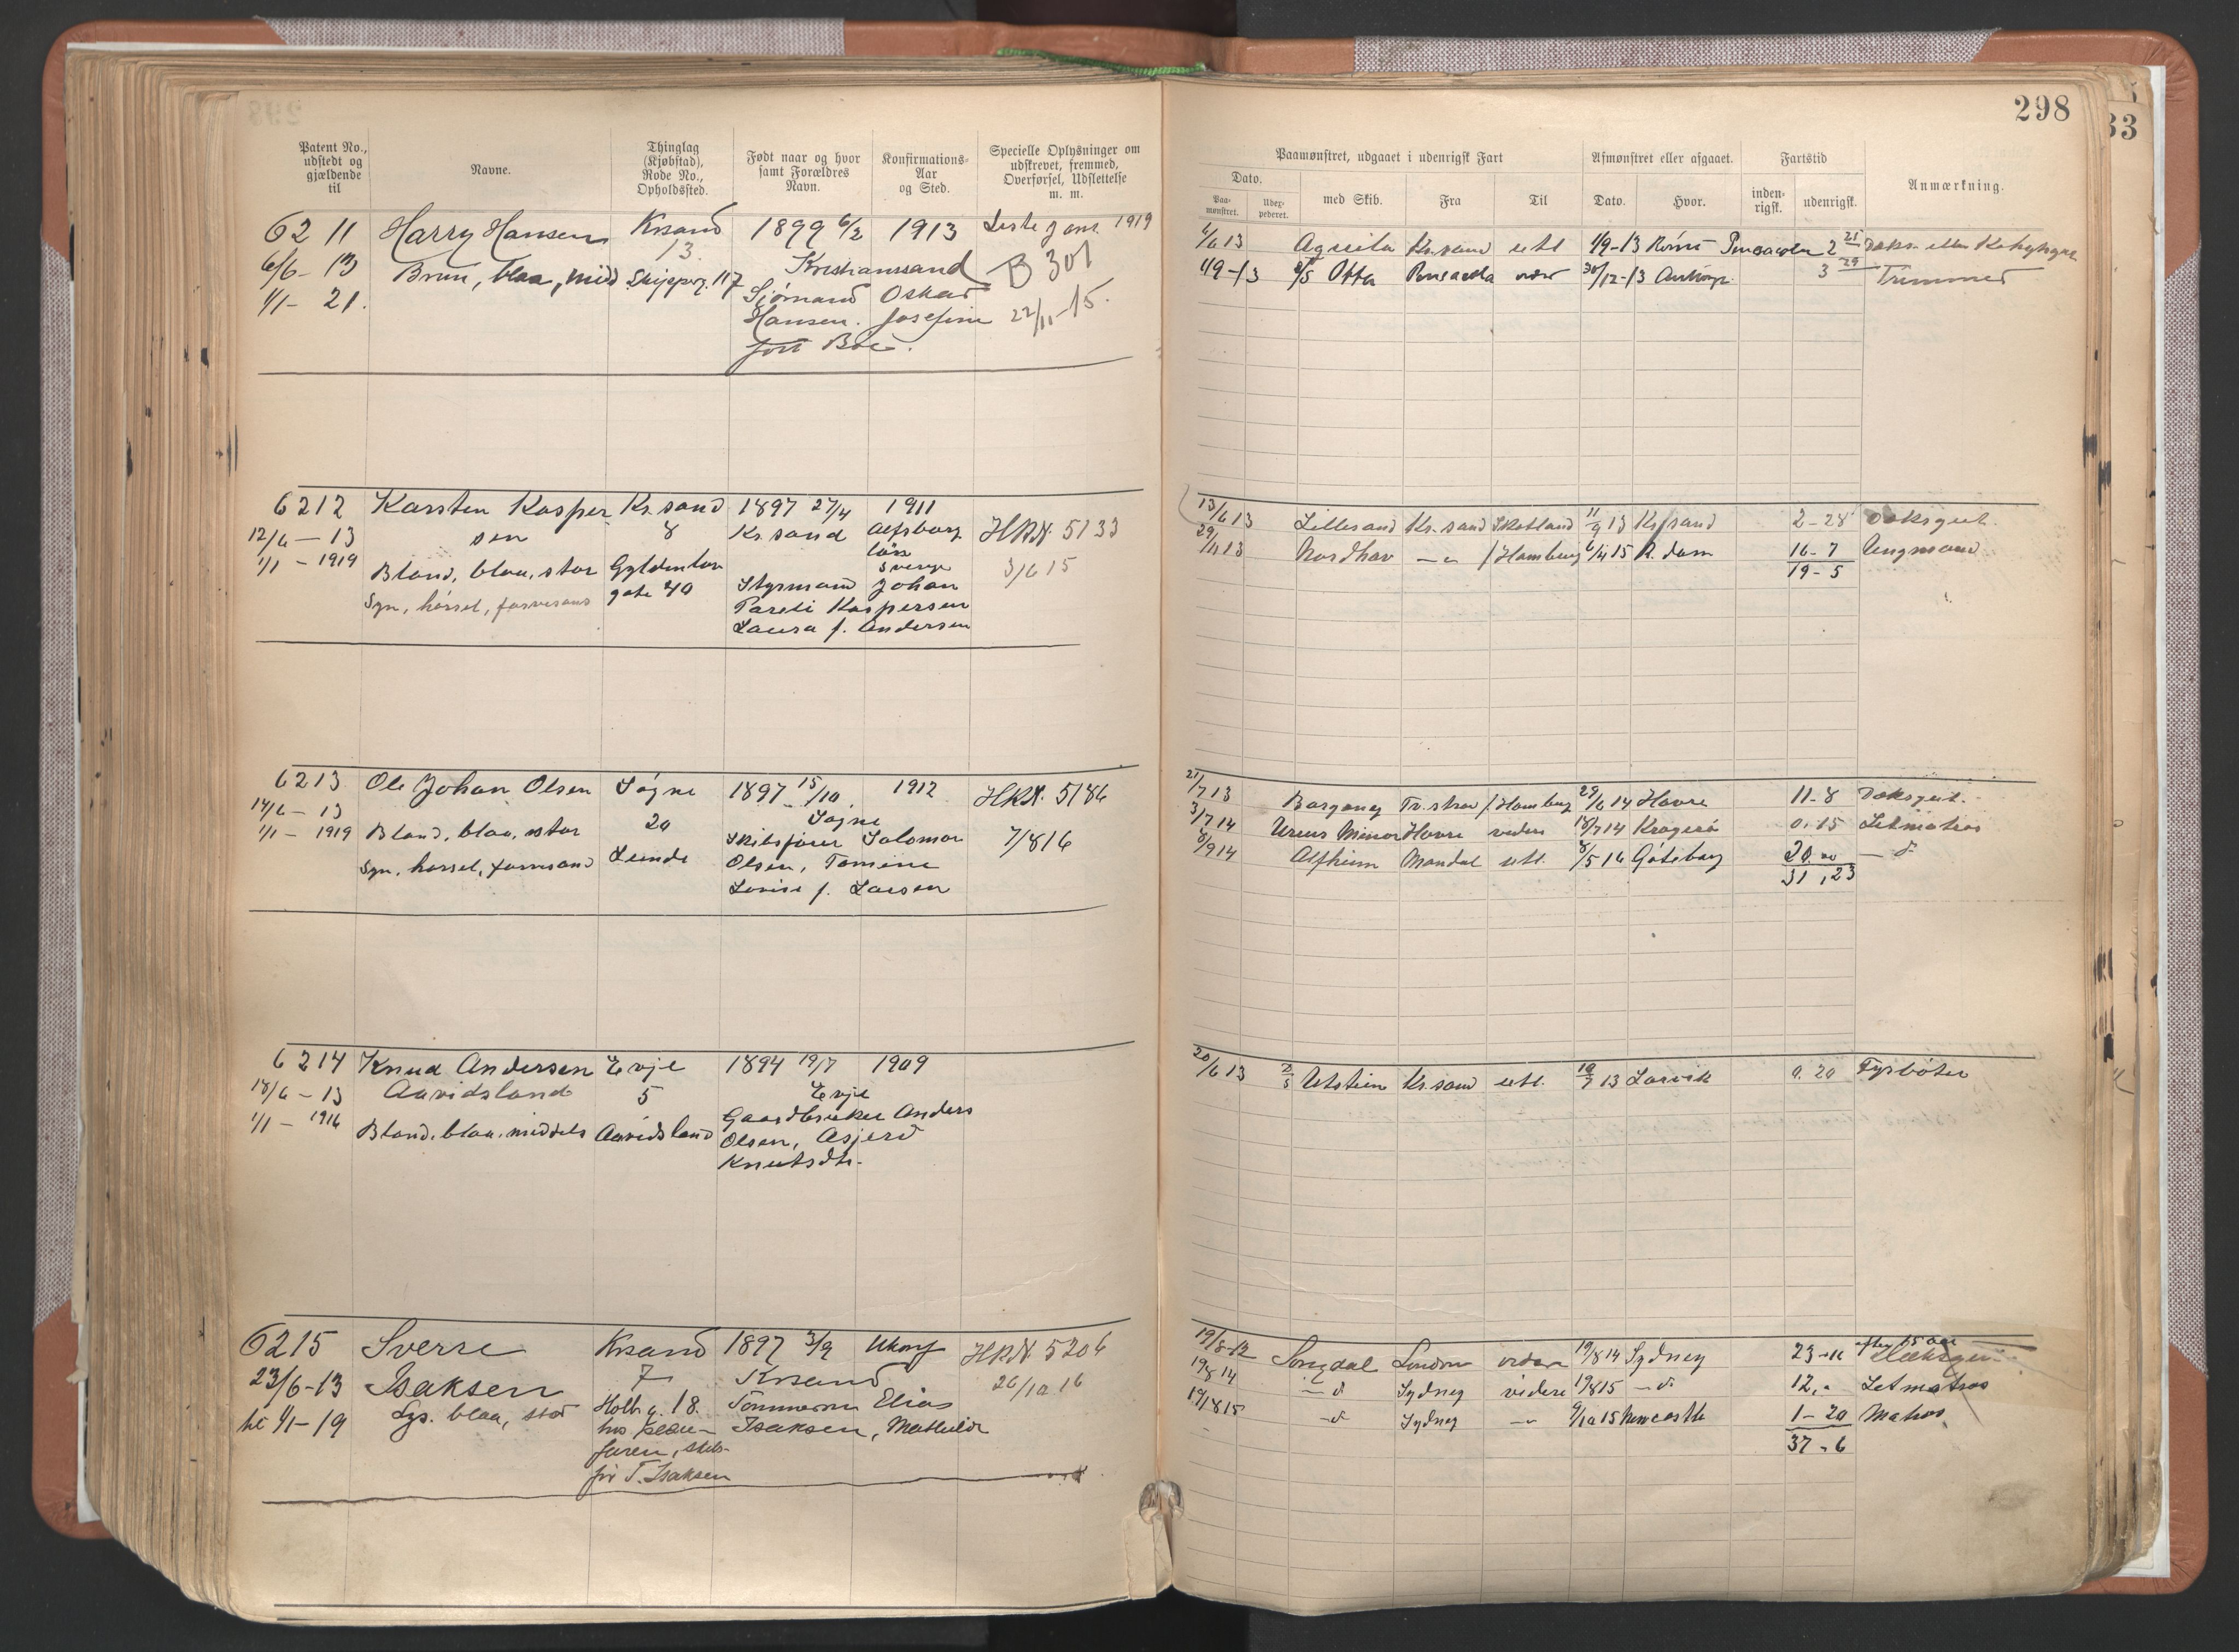 298
33
Patent No., udstedt og gjældende til
Navne.
Thinglag (Kjøbstad), Rode No., Opholdssted.
Født naar og hvor samt Forældres Navn.
Konfirmations-Aar og Sted.
Specielle Oplysninger om udskrevet, fremmed, Overførsel, Udslettelse m. m.
Paamønstret, udgaaet i udenrigsk Fart
Afmønstret eller afgaaet.
Fartstid
Anmærkning.
Dato.
Paa-mønstret.
Udex-pederet.
med Skib.
Fra
Til
Dato.
Hvor.
inden-rigsk.
udenrigsk.
6211 Harry Hansen Krsand 1899 6/2 1913 Liste J ans. 1919
6/6 - 13 13. Kristianssand B 301
Brun, blaa, midd Skippergt. 117
1/1 - 21. Sjømand Oskar 22/11-15.
Hansen. Josefine
født Boe.
6/6 13 Aquila Kr.sand utl 1/9-13 Rømt Pensacola 2 21
1/9-13 Otta Pensacola 30/12-13 3 29 Trimmer
6212 Karsten Kasper Kr.sand 1897 27/4 1911
12/6 - 13 sen 8 Kr.sand Alfsborg HRN. 5133
1/1 - 1919 län
Blond, blaa, stor Gyldenløv Sverge 3/6 15
gate 40 Styrmand Johan
Syn, hørsel, farvesans Pareli Kaspersen
Laura f. Andersen
13/6 13 Lillesand Kr.sand Skotland 11/9 13 Kr.sand 2-28 Dæksgut.
29/11 13 Nordhav - " - Hamburg 6/4 15 R.dam 16-7 Ungmand
19-5
6213 Ole Johan Olsen Søgne 1897 15/10. 1912 HRN. 5186
14/6 - 13 Søgne
1/1 - 1919 Blond, blaa, stor 20 Skibsfører Salomon 7/8 16
Syn, hørsel, farvesans Lunde Olsen, Tomine
Lovise f. Larsen
21/7 13 Hamburg 29/6 14 Havre 11-8 Dæksgut.
3/7 14 Ursus Minor Havre videre 18/7 14 Kragerø 0.15 Letmatros
8/9 14 Alfheim Mandal utl. 8/5 16 Gøteborg 20.00 - " -
31,23
6214 Knud Andersen Evje 1894 19/7 1909
18/6 - 13 Aavidsland 5 Evje
1/1 - 1916 Gaardbruker Anders
Blond, blaa, middels Aavidsland Olsen, Asjerd
Knutsdtr.
20/6 13 D/S Utstein Kr.sand utl. 10/7 13 Larvik 0.20 Fyrbøter
6215 Sverre Krsand 1897 3/9 Ukonf HRN 5206
23/6-13 Isaksen 7 Krsand 26/10 16
til 1/1-19 Lys. blaa, stor Holbg. 18. Tømmerm Elias
hos Isaksen, Mathilde
faren, skib-
før T. Isaksen
19/8-13 Songdal London videre 19/8 14 Sydney 23-11
19/8 14 - " Sydney videre 19/8 15 - " 12," Letmatros
19/8 15 - " Sydney - " 9/10 15 Newcastle 1-20 Matros
37-6